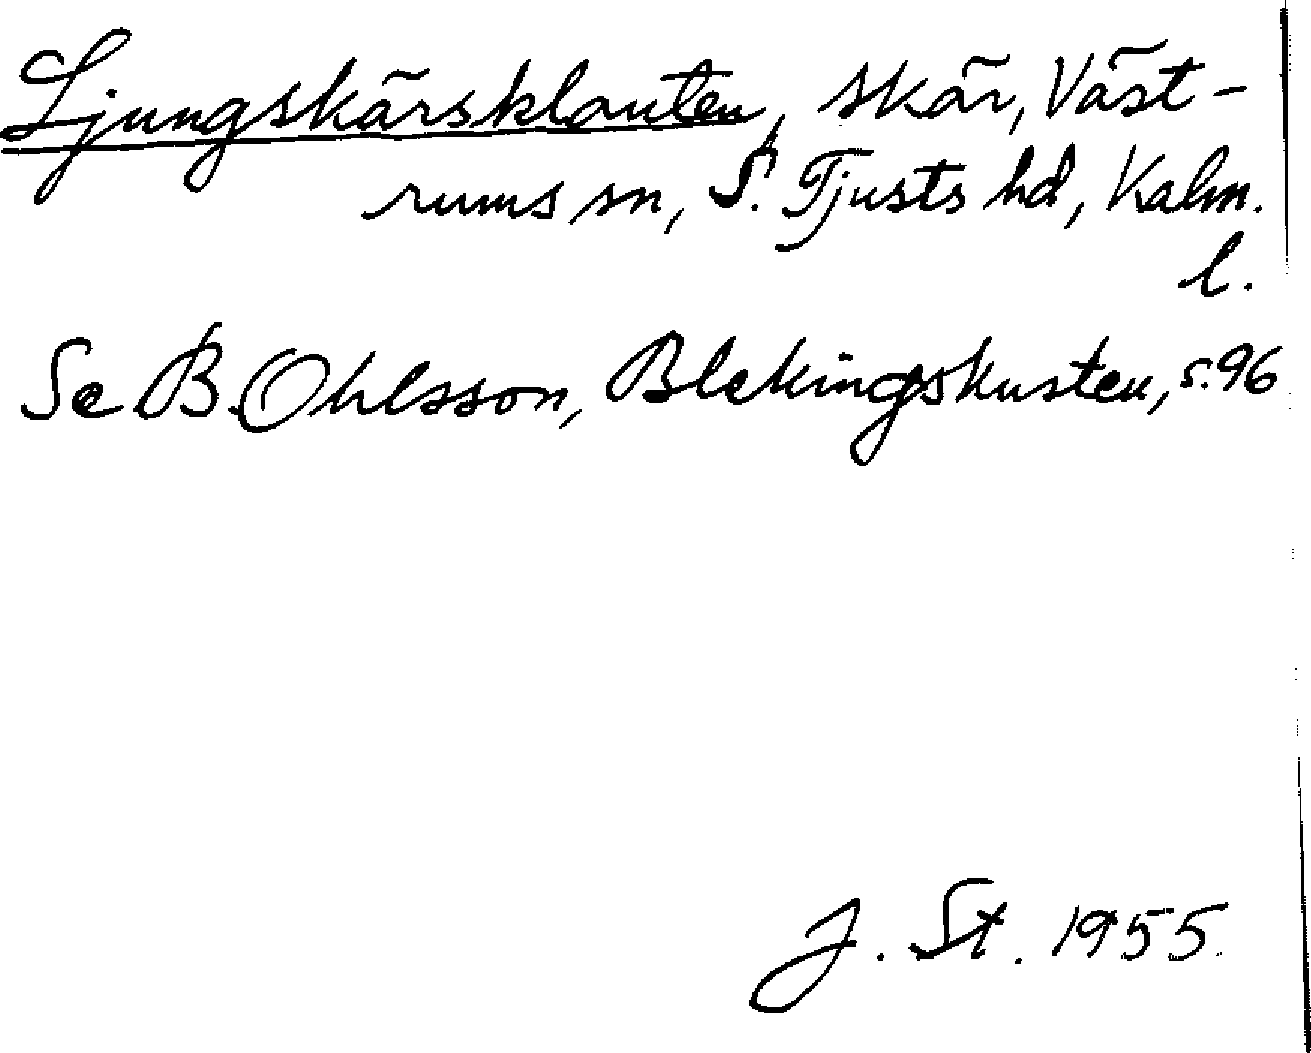 Ljungskärsklauten, skär, Väst-
rums sn, S. Tjusts hd, Kalm.
l.
Se B. Ohlsson, Blekingskusten, s. 96
J. St. 1955.